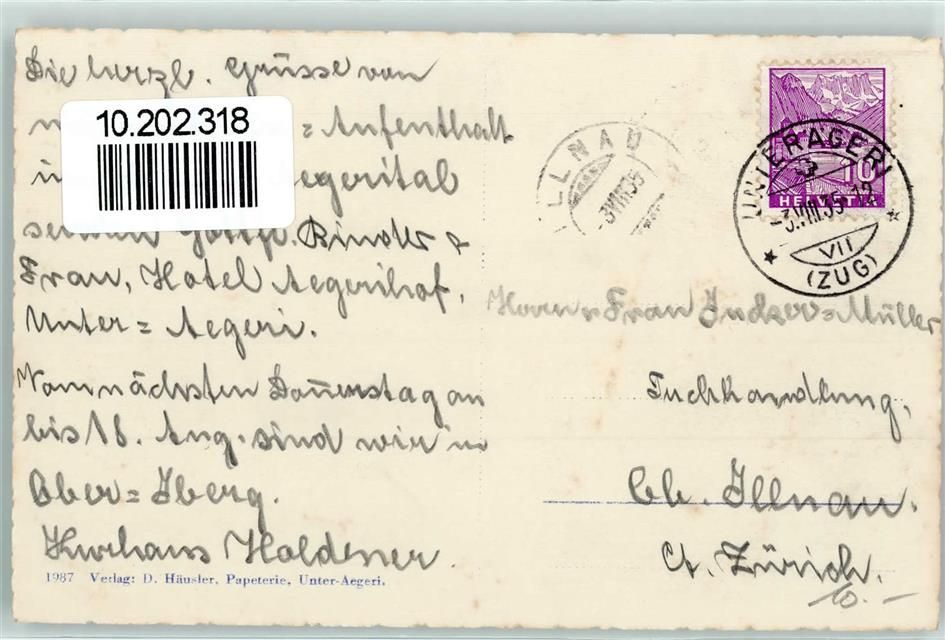 Die herzl. Grüsse von
10.202.318
= Aufenthalt
Aegerital
Gottfr. Rinder &
Frau, Hotel Aegerihof,
Unter = Aegeri.
Vom nächsten Donnerstag an
bis 18. Aug. sind wir in
Ober = Iberg.
Kurhaus Holdener.
1987 Verlag: D. Häusler, Papeterie, Unter-Aegeri.
LLNAU
3.VIII.35
10
HELVETIA
UNTERÄGERI
-3.VIII.35-12
VII
(ZUG)
Herrn & Frau = Müller
Tuchhandlung,
Ob. Illnau.
Ct. Zürich.
10.-